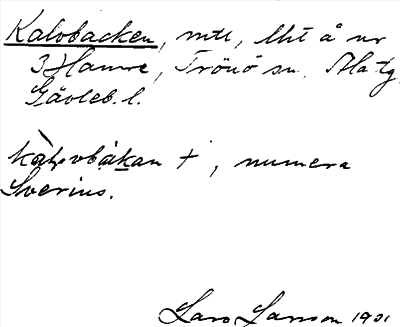 Kalvbacken, mtl, lht å nr
3 Hamre, Trönö sn. Ala tg.
Gävleb. l.
kàlvbákan †, numera
Sverius.
Lars Larsson 1931